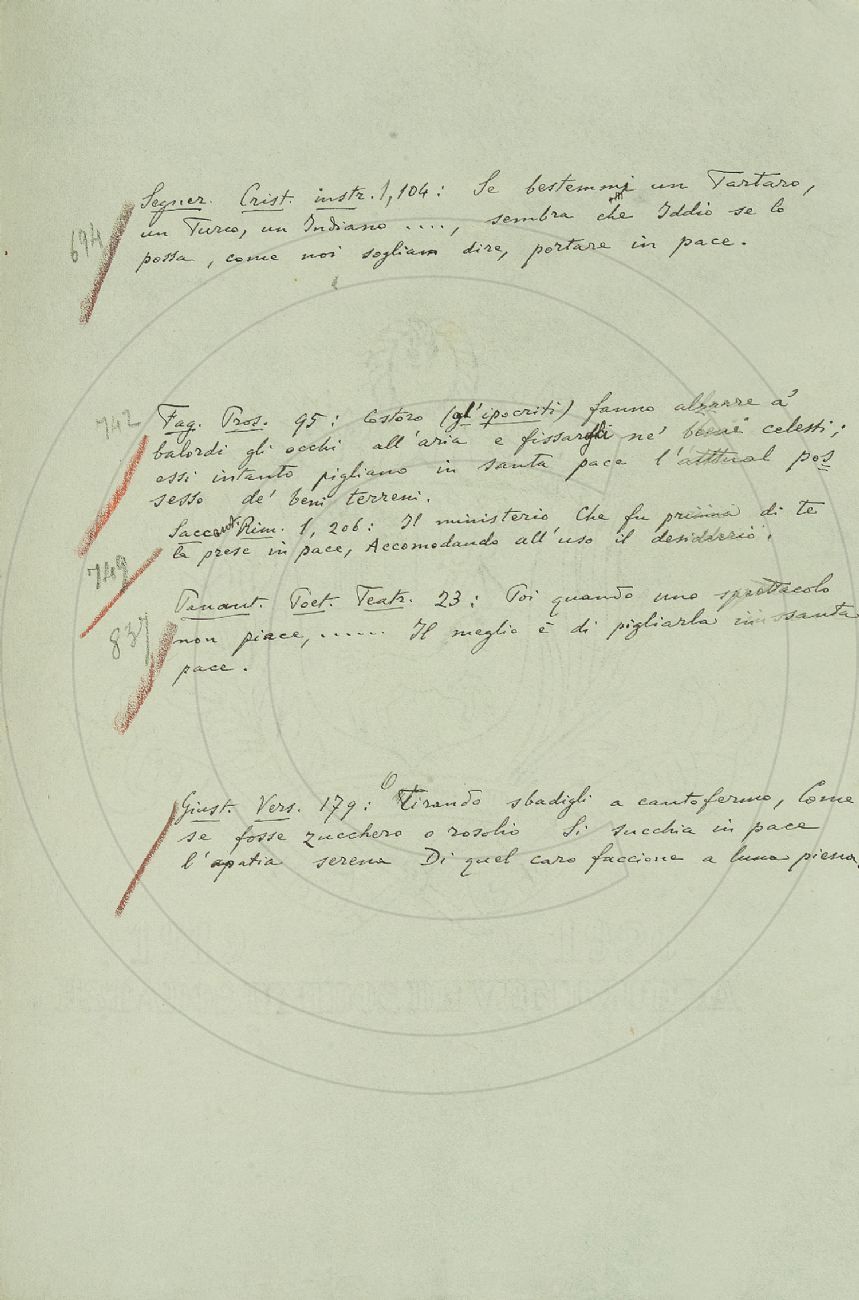 694
Segner. Crist. instr. 1, 104: Se bestemmi un Tartaro,
un Turco, un Indiano ...., sembra che Iddio se lo
possa, come noi sogliam dire, portare in pace.
742
Fag. Pros. 95: Costoro (gl'ipocriti) fanno alzare a'
balordi gli occhi all'aria e fissargli ne' beni celesti;
essi intanto pigliano in santa pace l'attual pos
sesso de' beni terreni.
749
Saccent. Rim. 1, 206: Il ministerio Che fu prima di te
la prese in pace, Accomodando all'uso il desiderio.
837
Panant. Poet. Teatr. 23: Poi quando uno spettacolo
non piace, ...... Il meglio è di pigliarla in santa
pace.
Giust. Vers. 179: O Tirando sbadigli a cantofermo, Come
se fosse zucchero o rosolio Si succhia in pace
l'apatia serena Di quel caro faccione a luna piena.